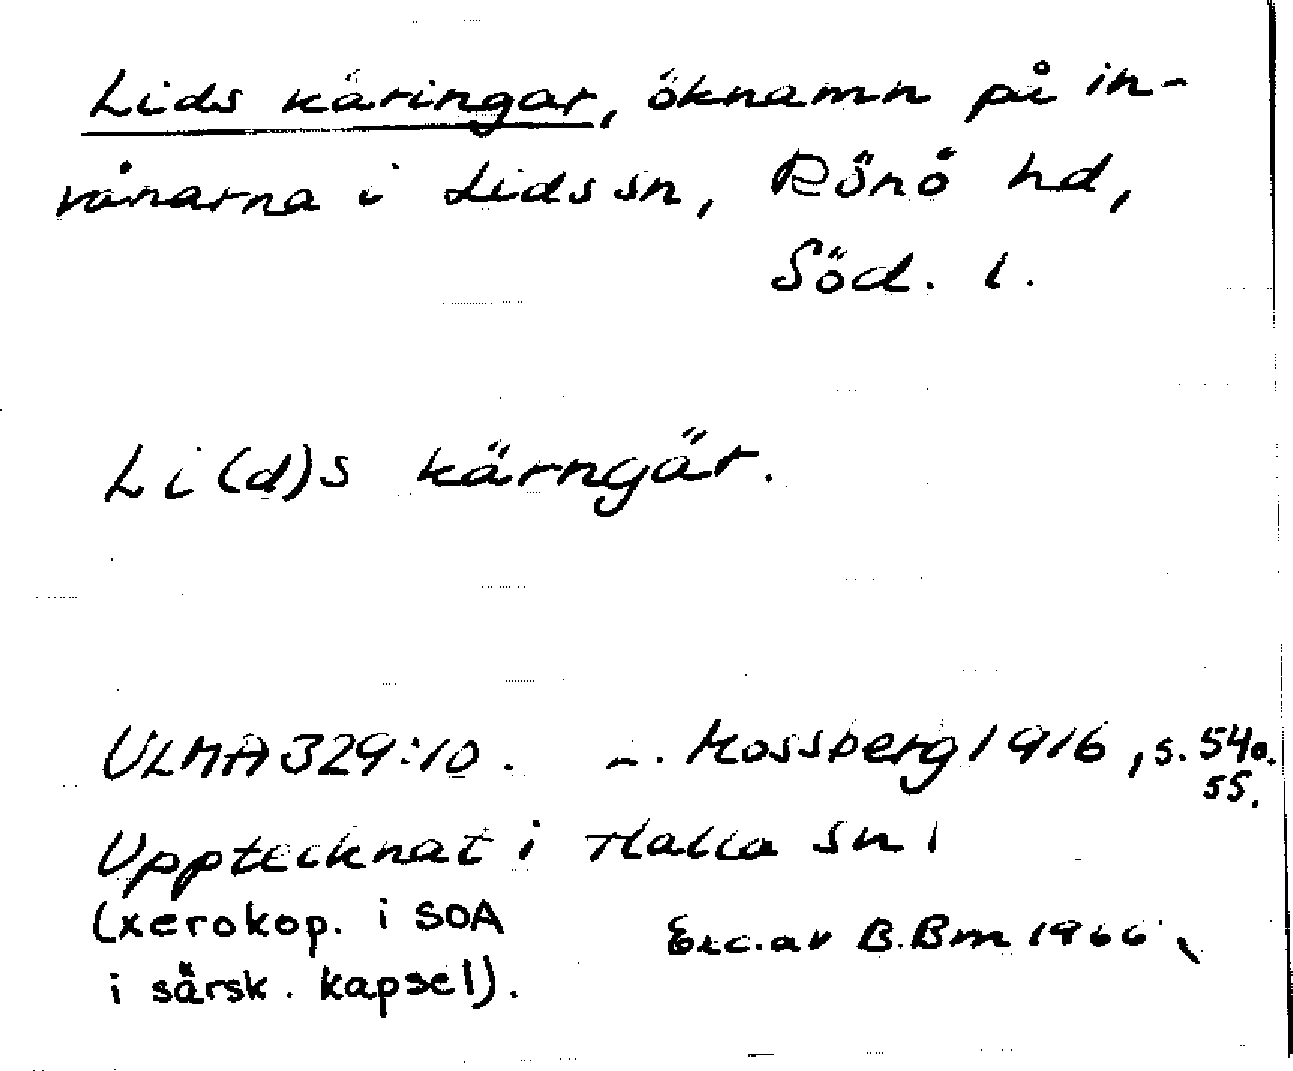 Lids käringar, öknamn på in-
vånarna i Lids sn, Rönö hd,
Söd. l.
Li(d)s kärngär.
ULMA 329:10. Mossberg 1916, s. 54 o.
55.
Upptecknat i Halla sn
(xerokop. i SOA
i särsk. kapsel).
Exc. av B. Bm 1966